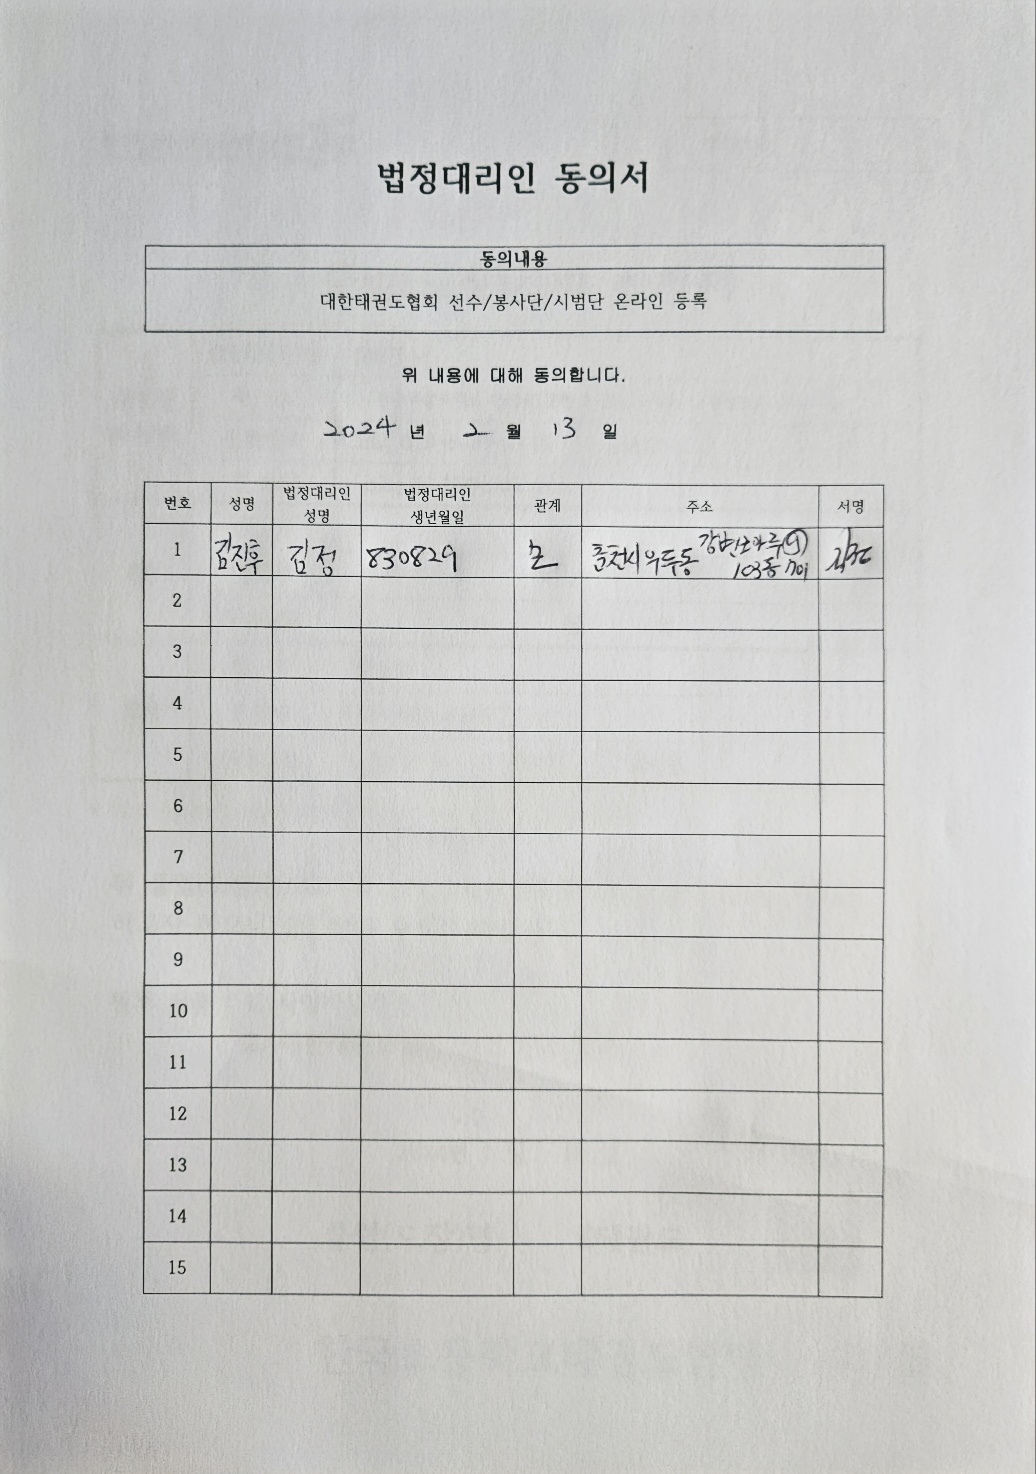 법정대리인 동의서
동의내용
대한태권도협회 선수/봉사단/시범단 온라인 등록
위 내용에 대해 동의합니다.
2024 년 2 월 13 일
번호 성명 법정대리인 성명 법정대리인 생년월일 관계 주소 서명
1 김진후 김정 830829 모 춘천시 우두동 강변코아루 103동
2
3
4
5
6
7
8
9
10
11
12
13
14
15